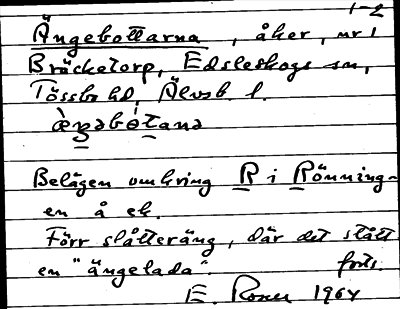 1-2
Ängebottarna, åker, nr 1
Bräcketorp, Edsleskogs sn,
Tössbo hd, Älvsb. l.
Belägen omkring R i Rönning-
en å ek.
Förr slåtteräng, där det stått
en "ängelada". forts.
E. 1964